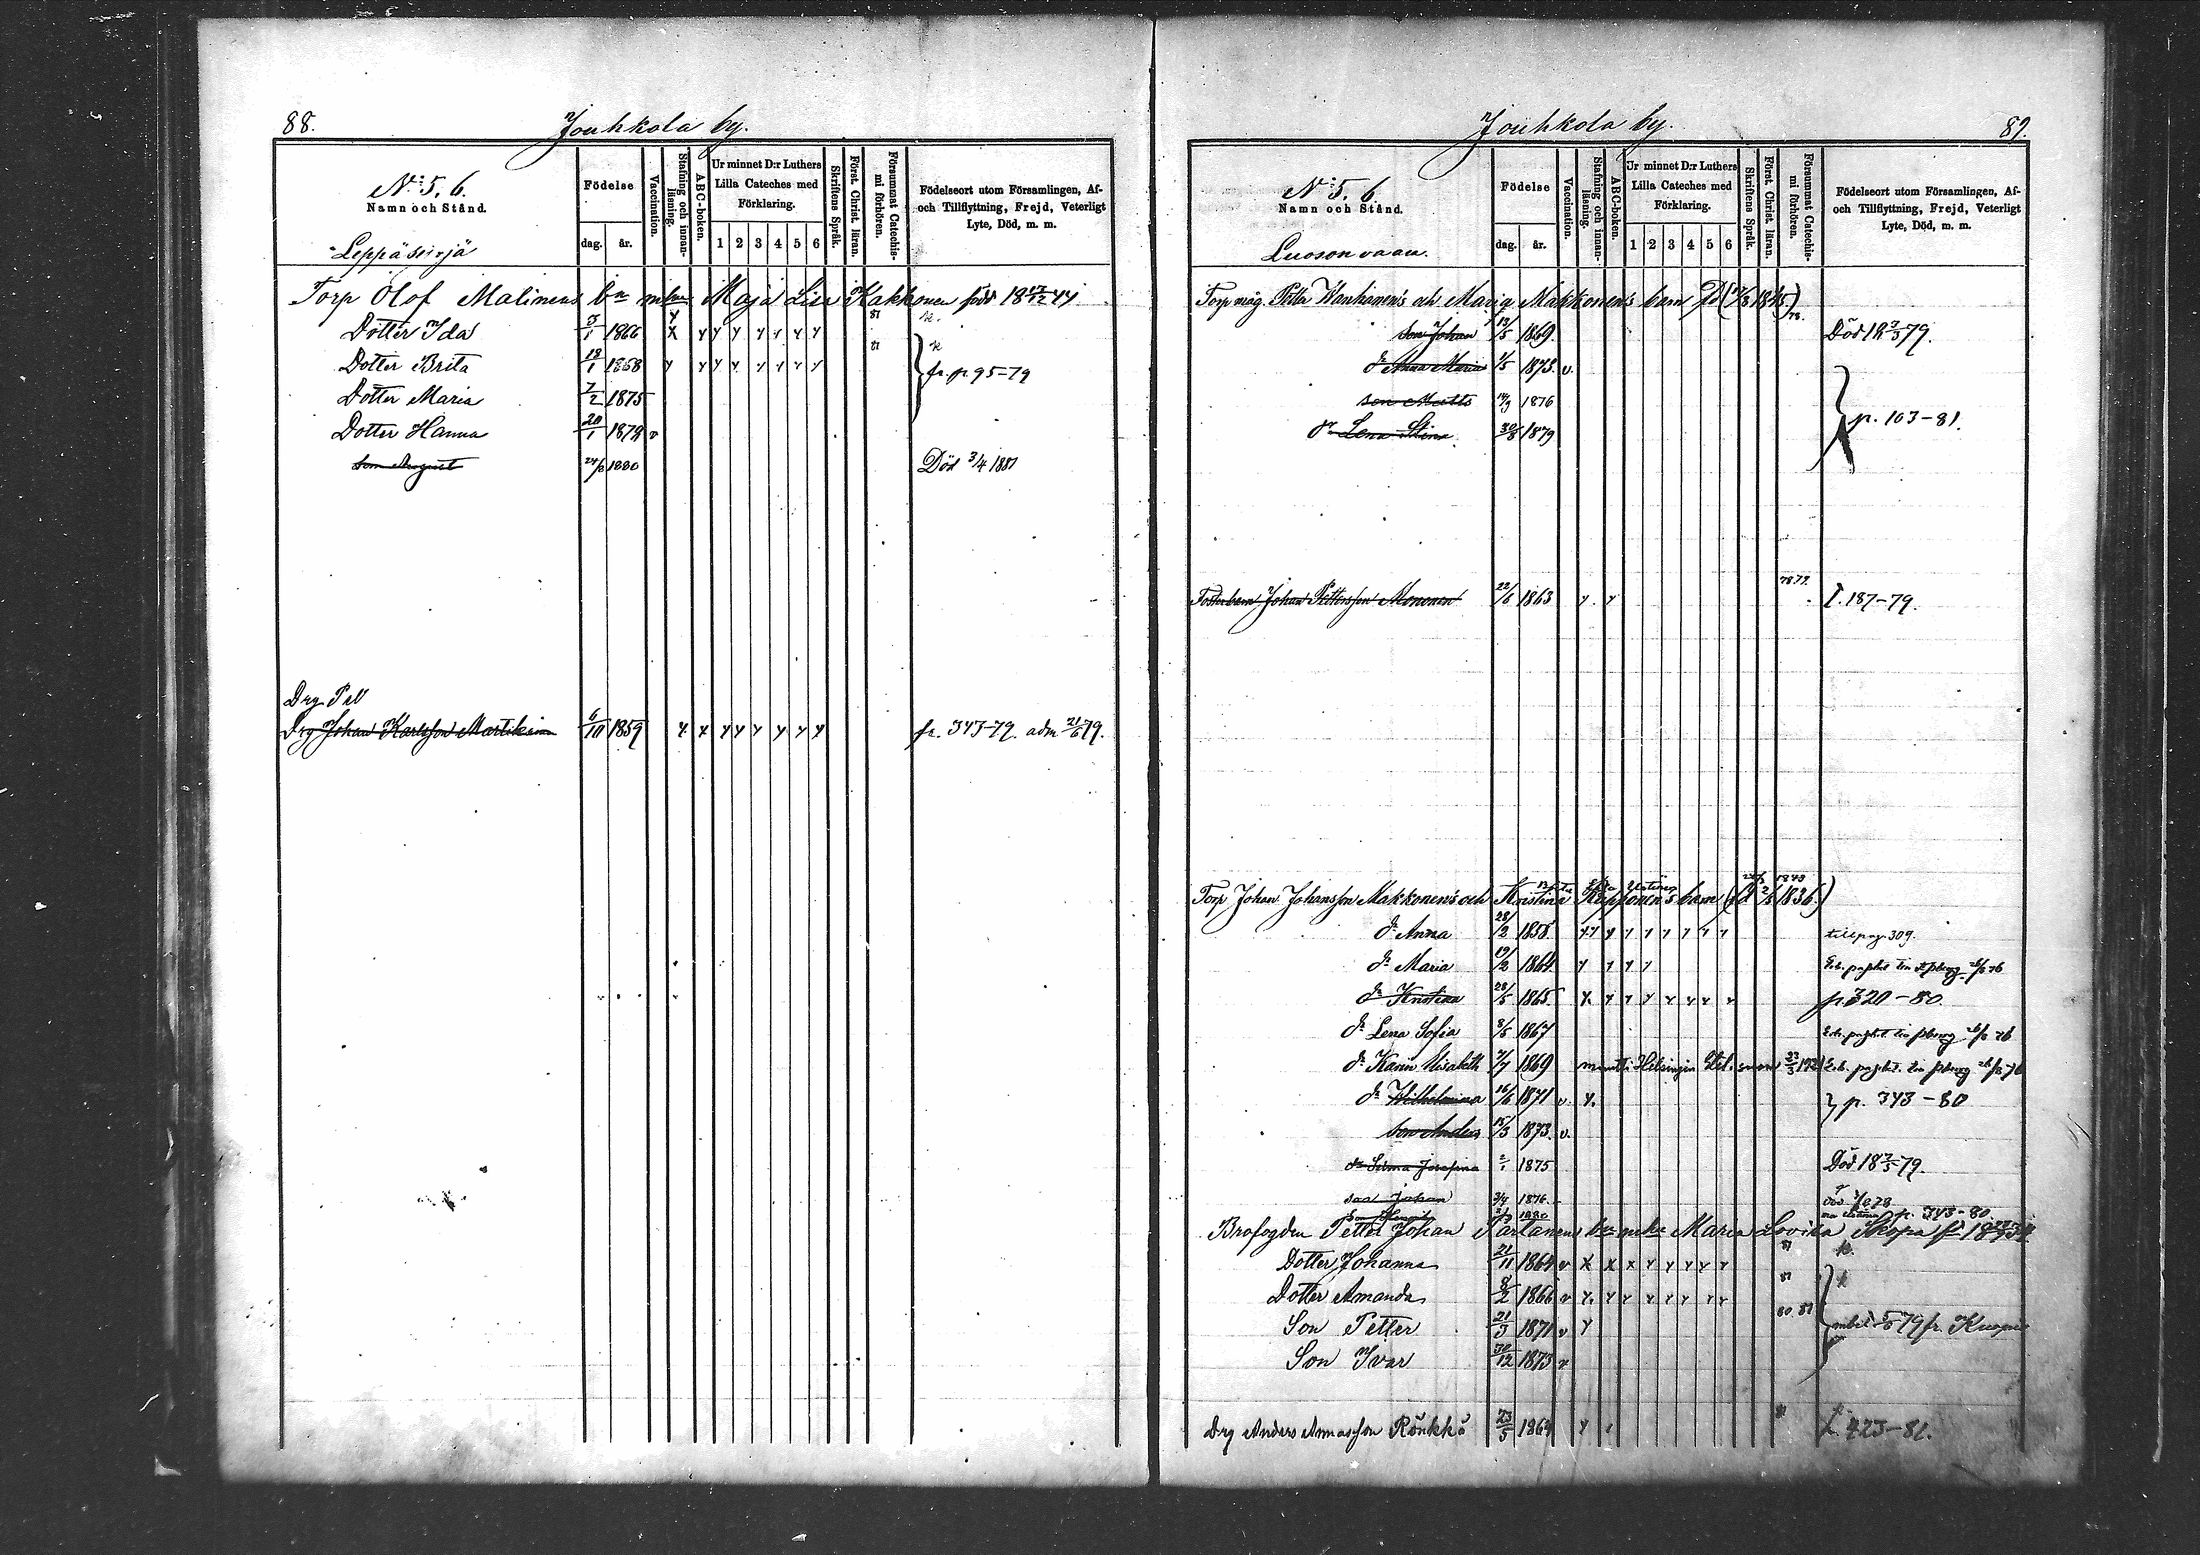 88.
Jouhkola by.
No 5. 6.
Namn och Stånd.
Leppäsirjä
Födelse
dag. år.
Vaccination.
Stafning och innan-läsning.
ABC-boken.
Ur minnet D:r Luthers Lilla Cateches med Förklaring.
1 2 3 4 5 6
Skriftens Språk.
Först. Christ. läran.
Försummat Catechis-mi förhören.
Födelseort utom Församlingen, Af- och Tillflyttning, Frejd, Veterligt Lyte, Död, m. m.
Torp Olof Malinens bn m hu Maja Lisa Kakkonen född 18 12 44
Dotter Ida 3/1 1866 x y y y y y y y 81 k.
Dotter Brita 18/1 1868 y y y y y y y y 81 k
fr. p. 95-79
Dotter Maria 7/2 1875
Dotter Hanna 20/1 1879 v
Son August 24/8 1880 Död 3/4 1881
Drg Pell
Drg Johan Karlsson Martikainen 6/10 1859 y y y y y y y y fr. 343-79. adm 21/6 79.
Jouhkola by.
89.
No 5. 6.
Namn och Stånd.
Luosonvaau.
Födelse
dag. år.
Vaccination.
Stafning och innan-läsning.
ABC-boken.
Ur minnet D:r Luthers Lilla Cateches med Förklaring.
1 2 3 4 5 6
Skriftens Språk.
Först. Christ. läran.
Försummat Catechis-mi förhören.
Födelseort utom Församlingen, Af- och Tillflyttning, Frejd, Veterligt Lyte, Död, m. m.
Torp måg. Petter Wanhanen's och Maria Makkonen's barn
78.
son Johan 13/5 1869. Död 18 3/3 79.
dr Anna Maria 1/5 1873. v.
son Matts 14/9 1876
p. 103-81.
dr Lena Stina 30/8 1879
78.79.
Fosterbarn Johan Pettersson Mononen 22/6 1863 y. y I. 187-79.
1843
Torp Johan Johansson Makkonen's och Kristina Kopponen's barn 1836.)
dr Anna 28/2 1858. y y y y y y y y till pag. 309.
dr Maria 19/2 1864 y y y y
dr Kristina 28/5 1865 y. y y y y y y y p. 320-80.
dr Lena Sofia 8/5 1867
dr Karin Elisabeth 7/7 1869 muutti Helsingin
dr Wilhelmina 16/6 1871 v. y. p. 343-80
son Anders 15/3 1873. v.
dr Selma Josefina 2/1 1875 Död 18 7/5 79.
son Johan 3/4 1876.
1880 p. 343-80.
Brofogden Petter Johan Partanens bn m hu Maria Lovisa
Dotter Johanna 21/11 1864 v x x x y y y y y 81 k.
Dotter Amanda 8/2 1866 v y. y y y y y y y 81 k
Son Petter 21/3 1871 v y 80. 81 fr. Kuopio
Son Ivar 30/12 1873 v
Drg Anders Annasson Rönkkö 23/5 1864 y 81 I. 423-81.